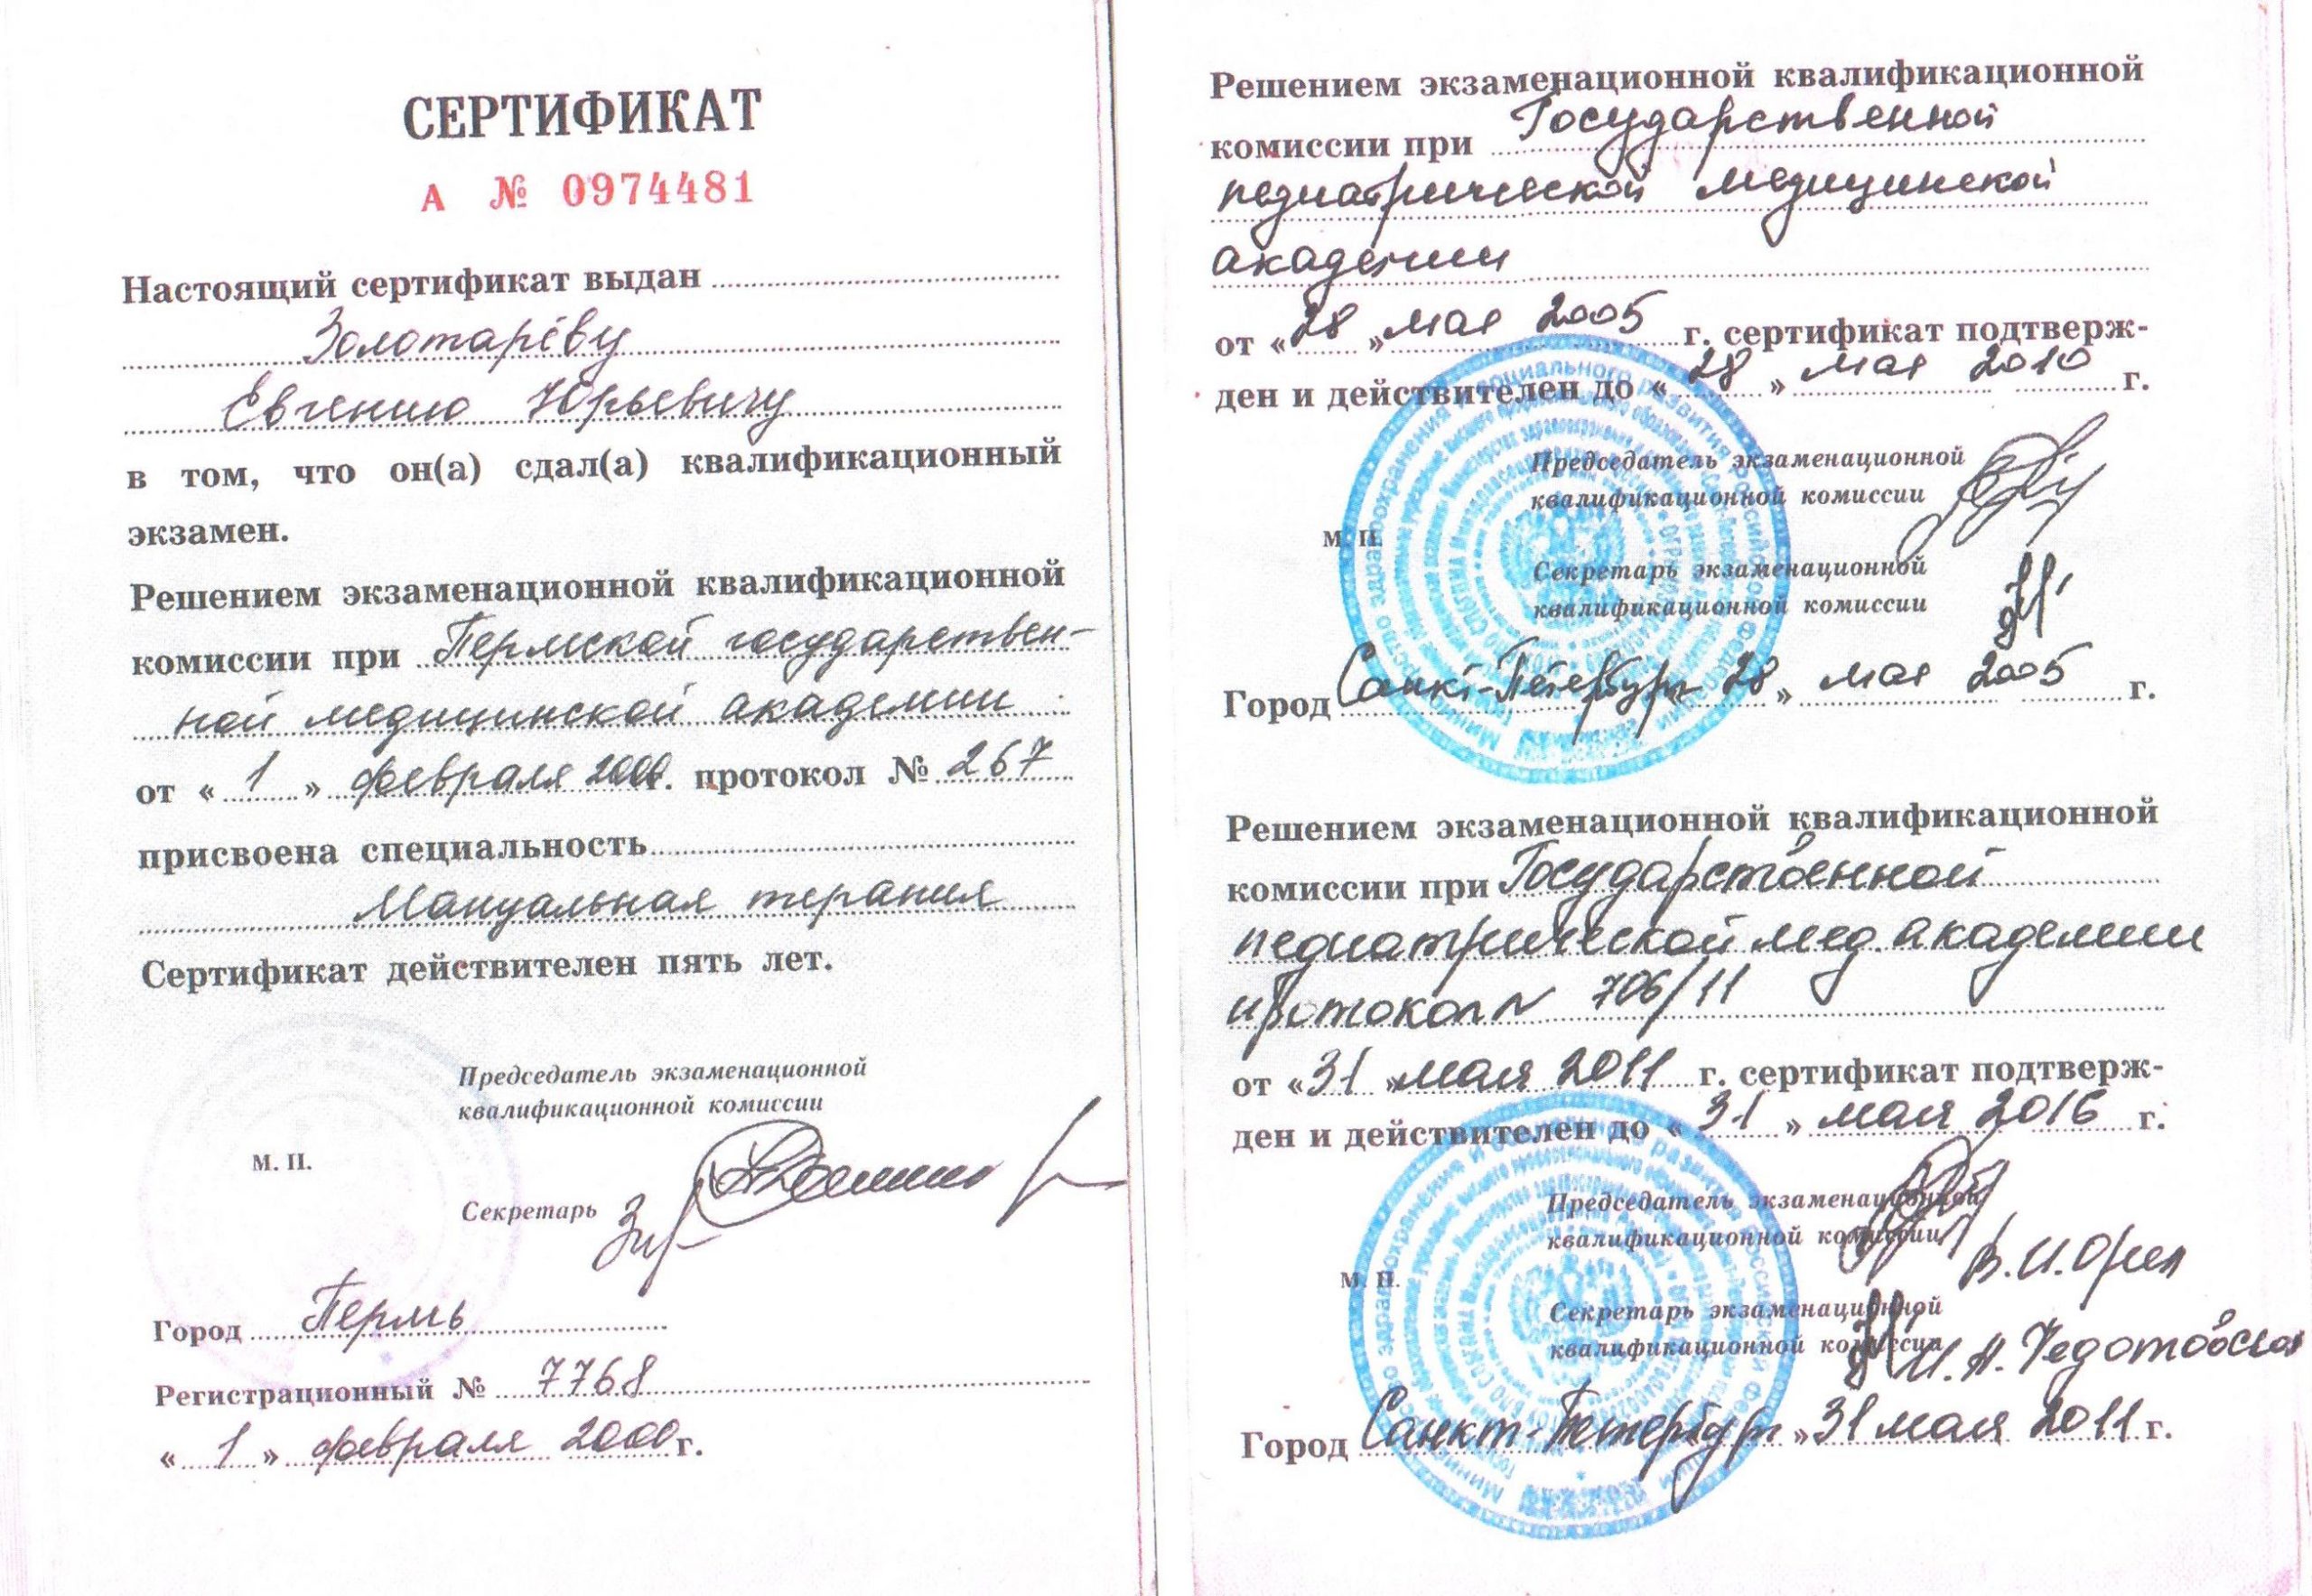 СЕРТИФИКАТ
А № 0974481
Настоящий сертификат выдан
Золотарёву
Евгению Юрьевичу
в том, что он(а) сдал(а) квалификационный
экзамен.
Решением экзаменационной квалификационной
комиссии при Пермской государствен-
ной медицинской академии
от « 1 » февраля 2000 г. протокол № 267
присвоена специальность
Мануальная терапия
Сертификат действителен пять лет.
Председатель экзаменационной
квалификационной комиссии
М. П.
Секретарь
Город Пермь
Регистрационный № 7768
« 1 » февраля 2000 г.
Решением экзаменационной квалификационной
комиссии при Государственной
педиатрической медицинской
академии
от « 28 » мая 2005 г. сертификат подтверж-
ден и действителен до « 28 » мая 2010 г.
Председатель экзаменационной
квалификационной комиссии
М. П.
Секретарь экзаменационной
квалификационной комиссии
Город Санкт-Петербург 28 » мая 2005 г.
Решением экзаменационной квалификационной
комиссии при Государственной
педиатрической мед. академии
протокол N 706/11
от « 31 » мая 2011 г. сертификат подтверж-
ден и действителен до « 31 » мая 2016 г.
Председатель экзаменационной
квалификационной комиссии
В.И. Орел
М. П.
Секретарь экзаменационной
квалификационной комиссии
Город Санкт-Петербург » 31 мая 2011 г.